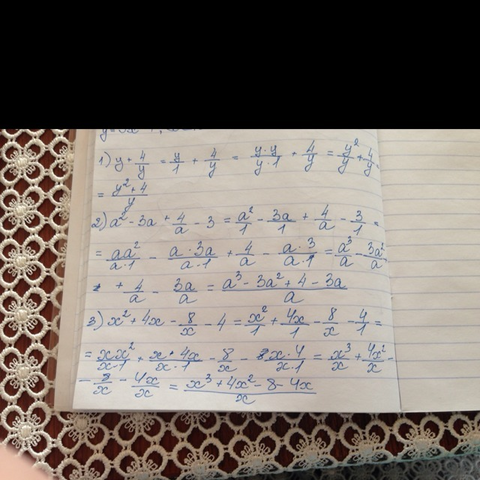 1) y + 4/y = y/1 + 4/y = y·y/y·1 + 4/y = y²/y + 4/y =
= y²+4/y
2) a² - 3a + 4/a - 3 = a²/1 - 3a/1 + 4/a - 3/1 =
= aa²/a·1 - a·3a/a·1 + 4/a - a·3/a·1 = a³/a - 3a²/a
+ 4/a - 3a/a = a³ - 3a² + 4 - 3a/a
3) x² + 4x - 8/x - 4 = x²/1 + 4x/1 - 8/x - 4/1 =
= xx²/x·1 + x·4x/x·1 - 8/x - x·4/x·1 = x³/x + 4x²/x -
- 8/x - 4x/x = x³ + 4x² - 8 - 4x/x